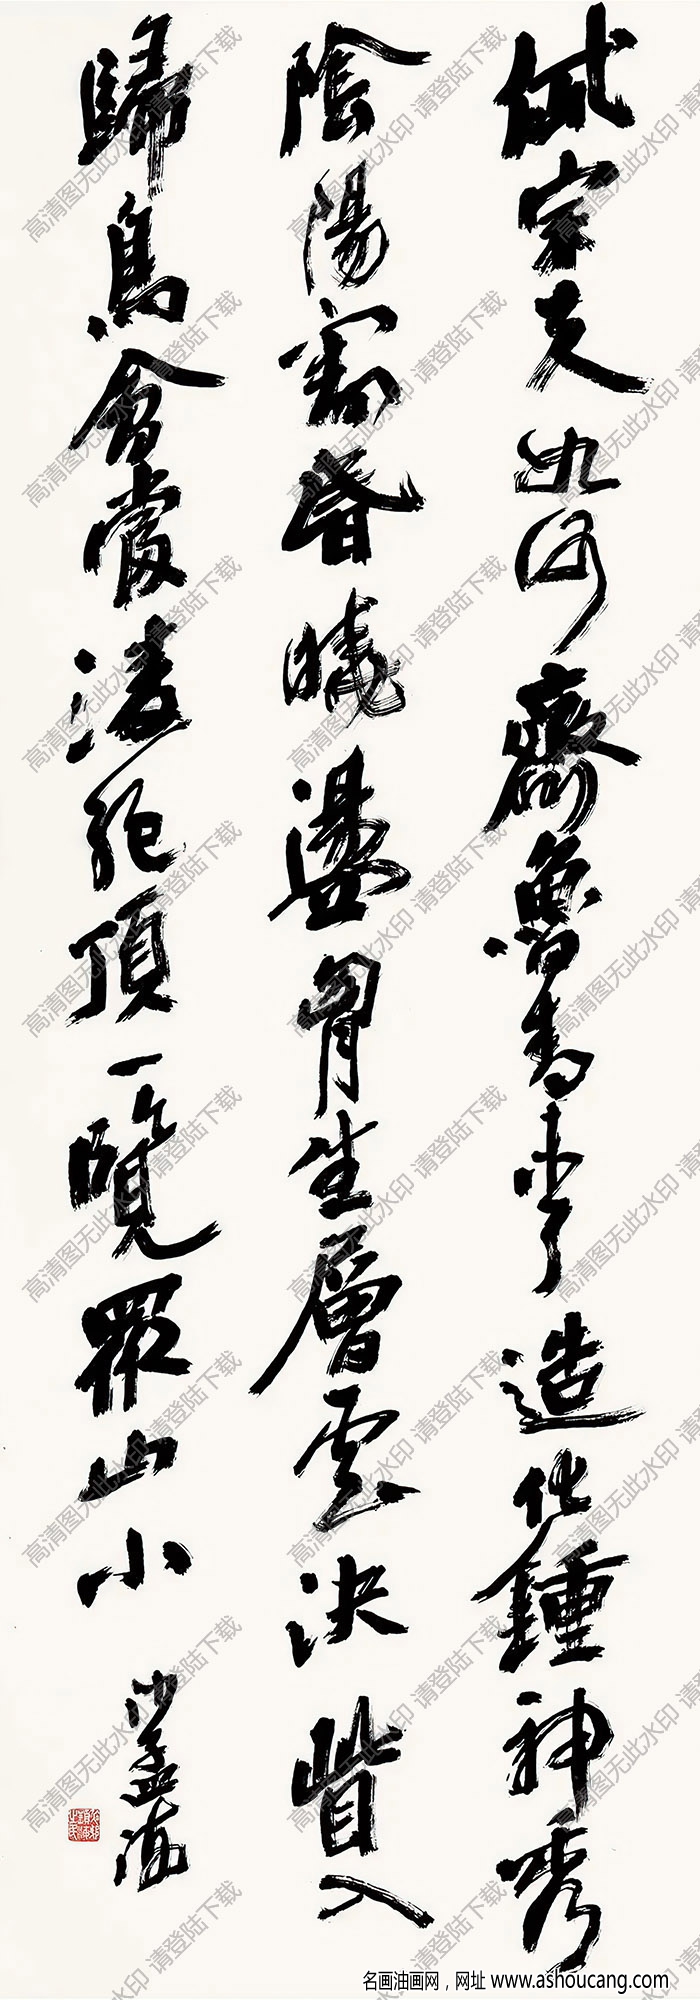 岱宗夫如何齊魯青未了造化鍾神秀
陰陽割昏曉盪胷生層雲決眥入
歸鳥會當淩絕頂一覽眾山小
沙孟海
高清图无此水印 请登陆下载
名画油画网，网址 www.ashoucang.com